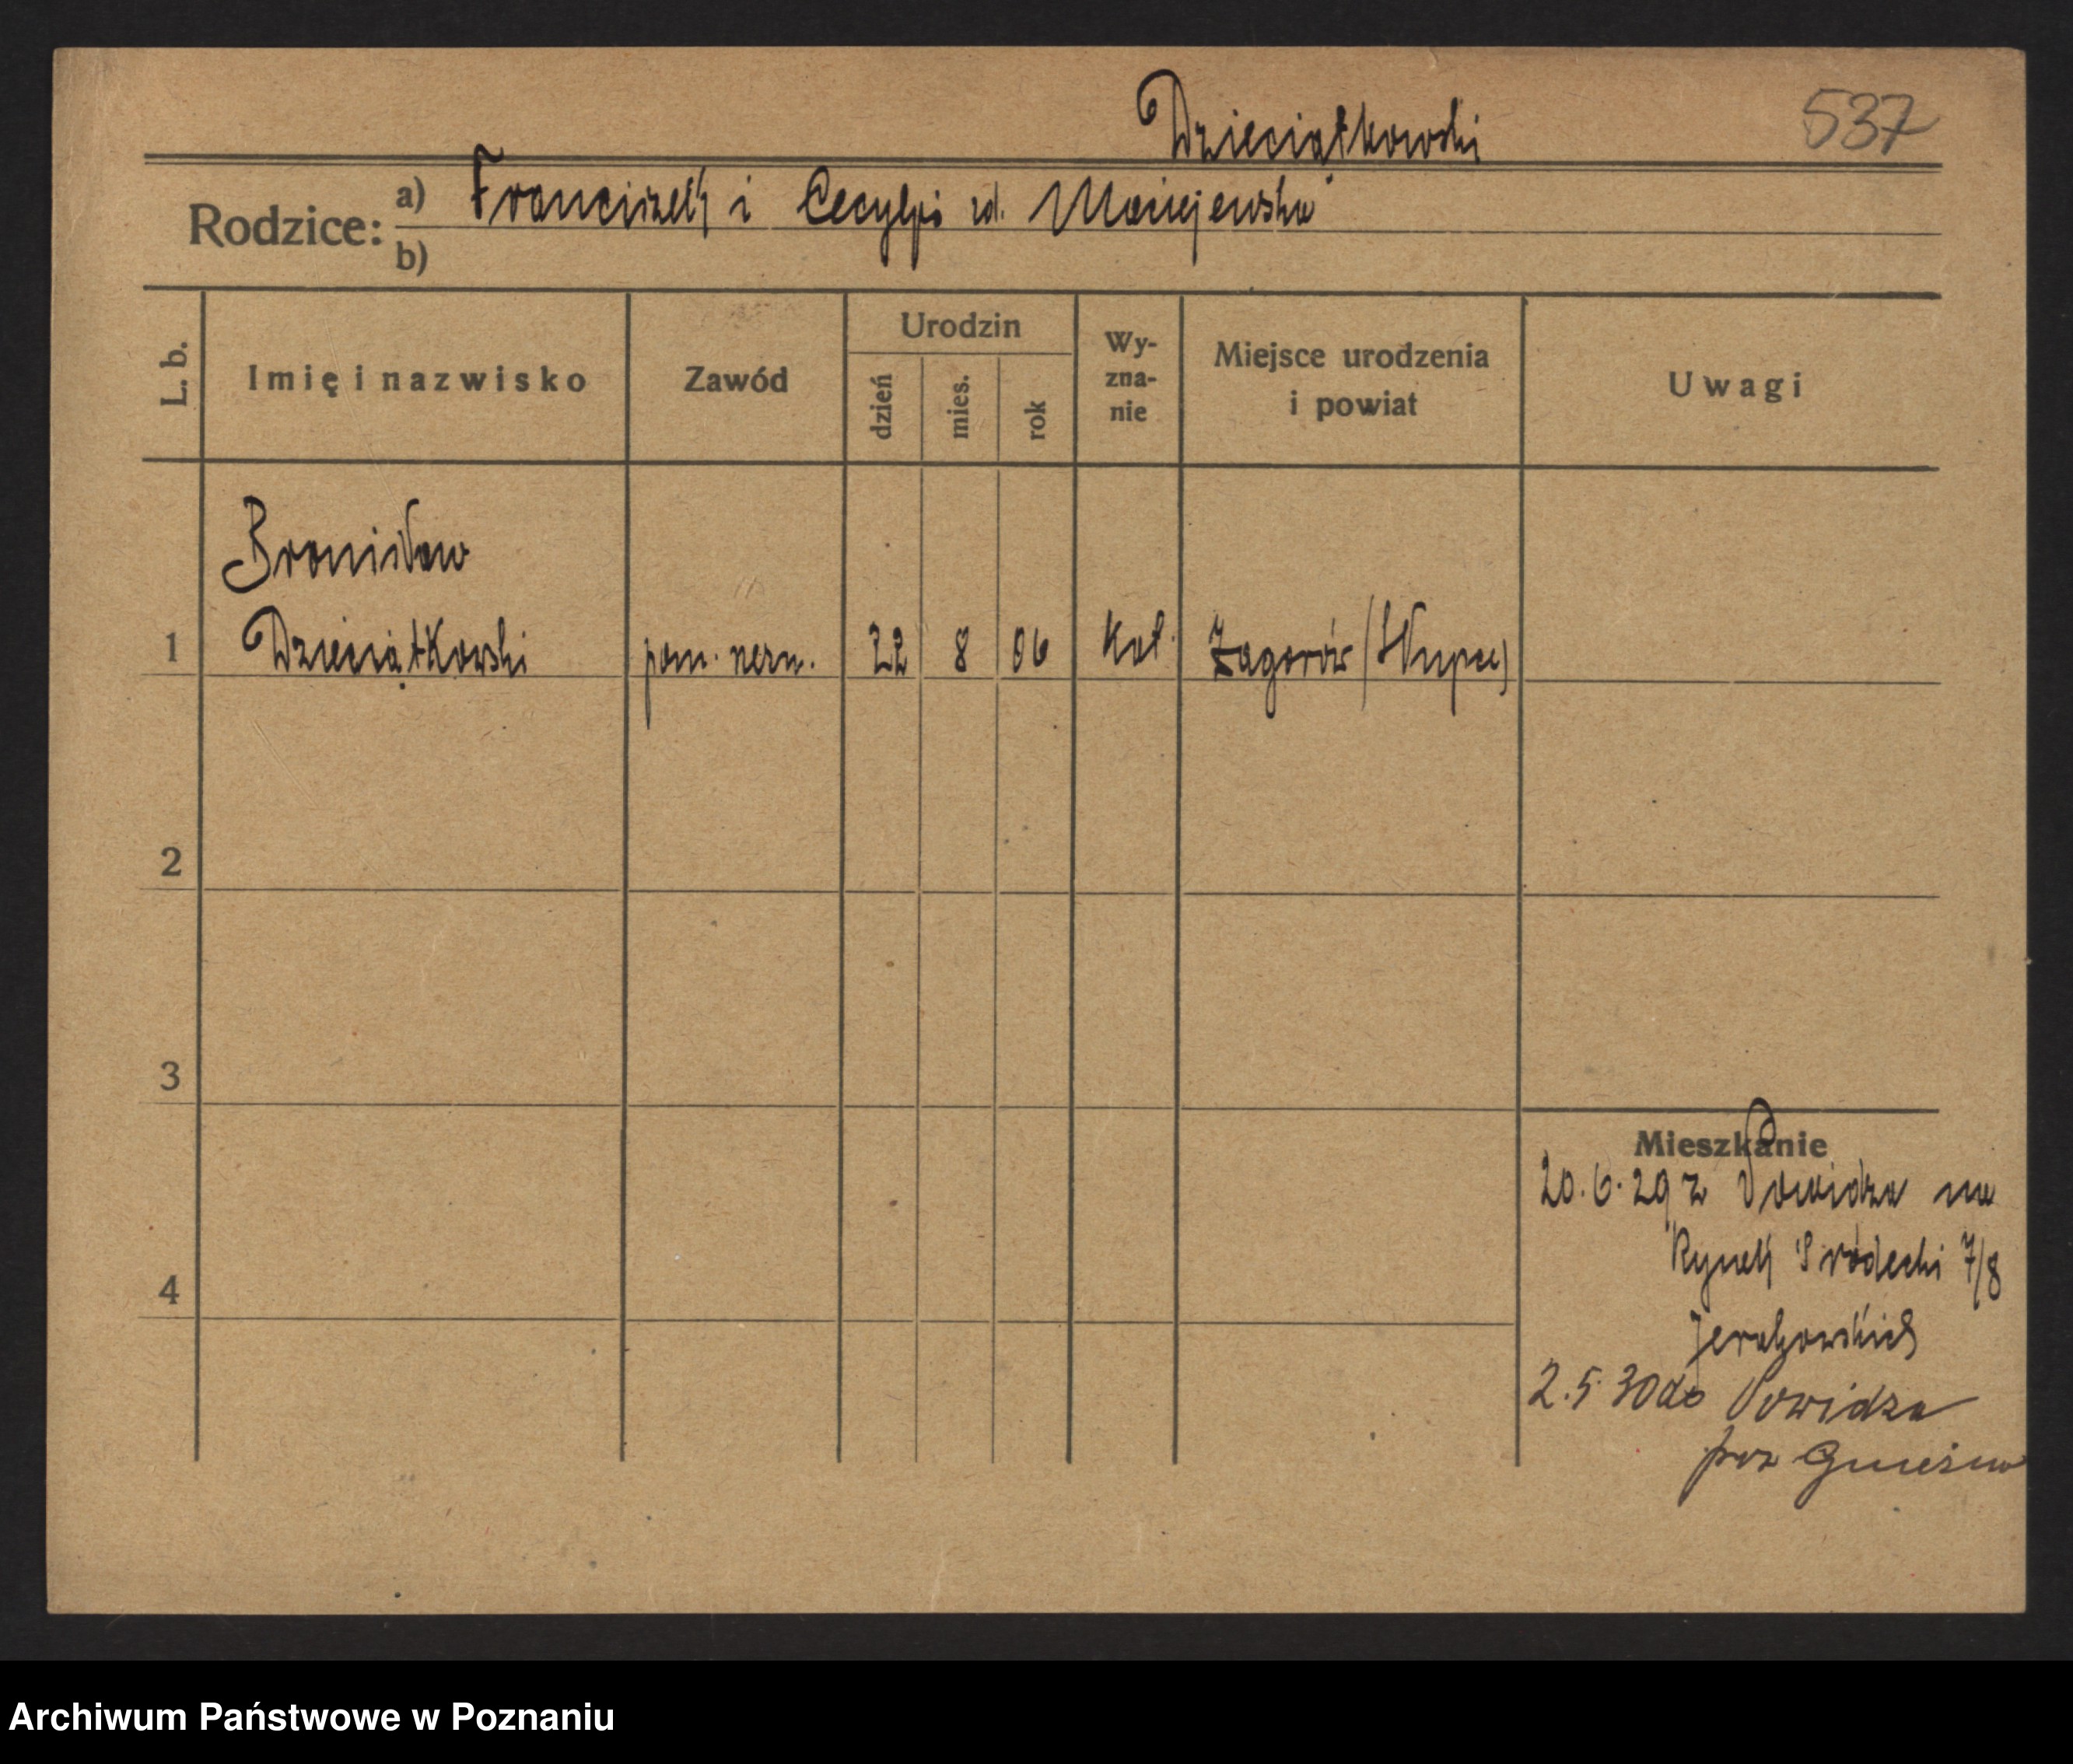 Dzieciątkowski
537
Rodzice: a) Franciszek i Cecylja zd. Maciejewska
b)
L. b.
Imię i nazwisko
Zawód
Urodzin
dzień
mies.
rok
Wy-
zna-
nie
Miejsce urodzenia
i powiat
Uwagi
Bronisław
1 Dzieciątkowski pom. rzeźn. 22 8 06 Kat. Zagorów (Słupca)
2
3
4
Mieszkanie
20.6.29 z Powidza na
Rynek Śródecki 7/8
2.5.30 do Powidza
pow Gniezno
Archiwum Państwowe w Poznaniu